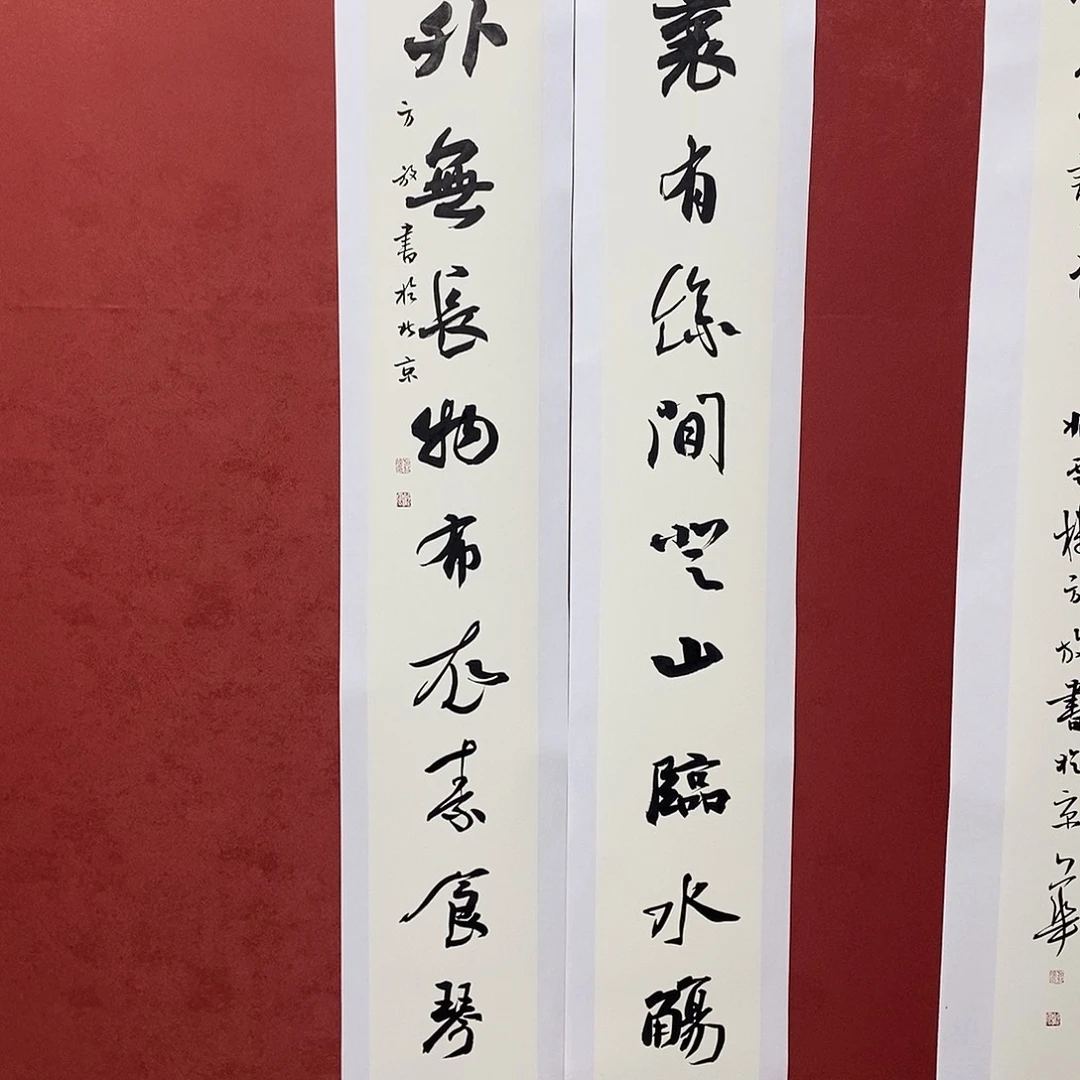 雲樓方放書於京華
裏有餘間登山臨水觴
外無長物布衣素食琴
方放書於北京